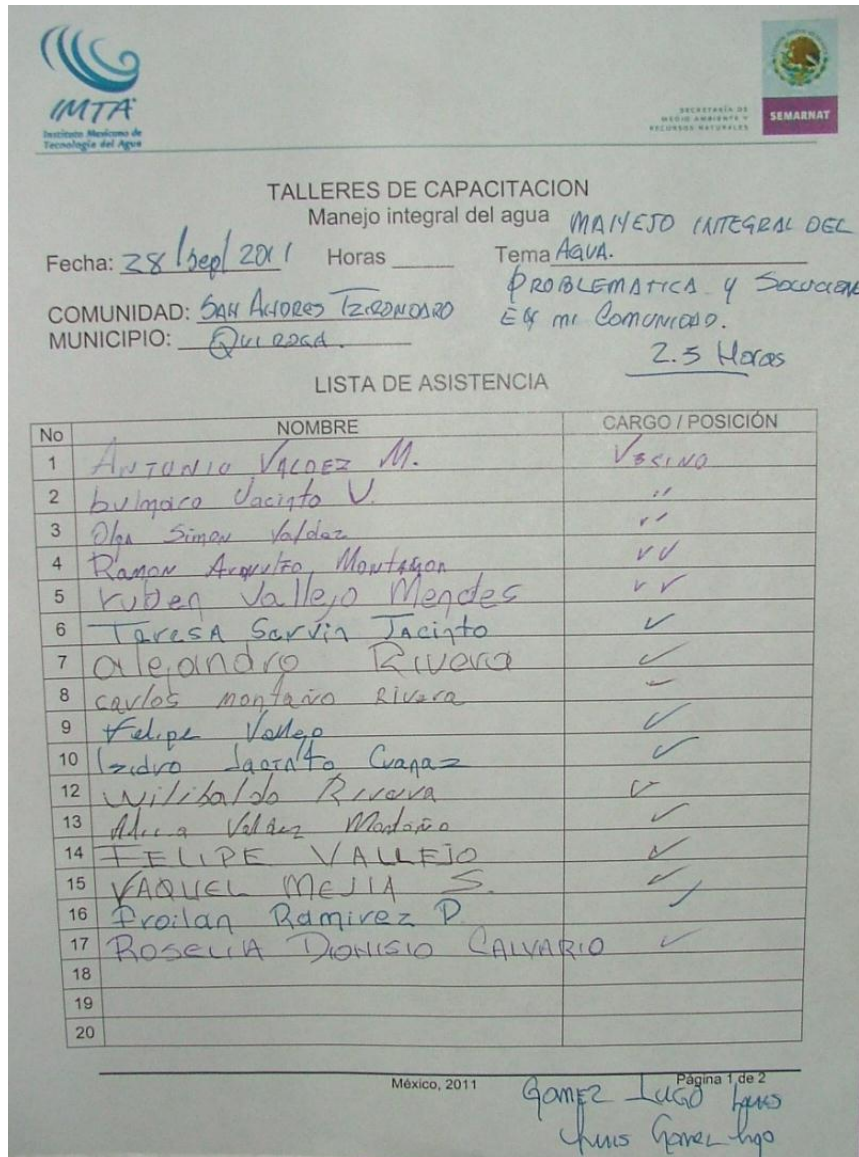 IMTA
Instituto Mexicano de
Tecnología del Agua
SECRETARÍA DE
MEDIO AMBIENTE Y
RECURSOS NATURALES
SEMARNAT
TALLERES DE CAPACITACION
Manejo integral del agua
MANEJO INTEGRAL DEL
Fecha: 28/sep/2011 Horas ______ Tema AGUA.
PROBLEMATICA y
COMUNIDAD: SAN ANDRES TZIRONDARO EN mi COMUNIDAD.
MUNICIPIO: QUIROGA.
2.5 Horas
LISTA DE ASISTENCIA
No NOMBRE CARGO / POSICIÓN
1 ANTONIO VALDEZ M. VECINO
2 bulmaro Jacinto V. ''
3 Olga Simon Valdez ''
4 Ramon Montañon ✓✓
5 ruben Vallejo Mendes ✓✓
6 Teresa Servin Jacinto ✓
7 alejandro Rivera ✓
8 carlos montaño Rivera ✓
9 Felipe Vallejo ✓
10 Izidro Jacinto Cuanaz ✓
12 Wilibaldo Rivera ✓
13 Valdez Montaño ✓
14 FELIPE VALLEJO ✓
15 VAQUEL MEJIA S. ✓
16 Froilan Ramirez P. ✓
17 ROSELIA DIONISIO CALVARIO ✓
18
19
20
México, 2011 Página 1 de 2
GOMEZ LUGO
Luis Gomez Lugo